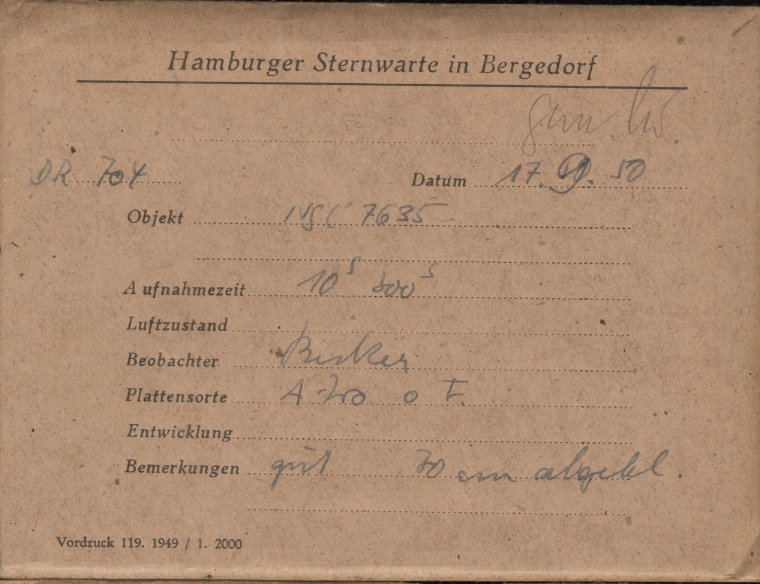 Hamburger Sternwarte in Bergedorf
DR 704 Datum 17. 9. 50
Objekt NGC 7635
Aufnahmezeit 10s 300s
Luftzustand
Beobachter Becker
Plattensorte A-Zo o F.
Entwicklung
Bemerkungen gut 30 cm abgebl.
Vordruck 119. 1949 / 1. 2000